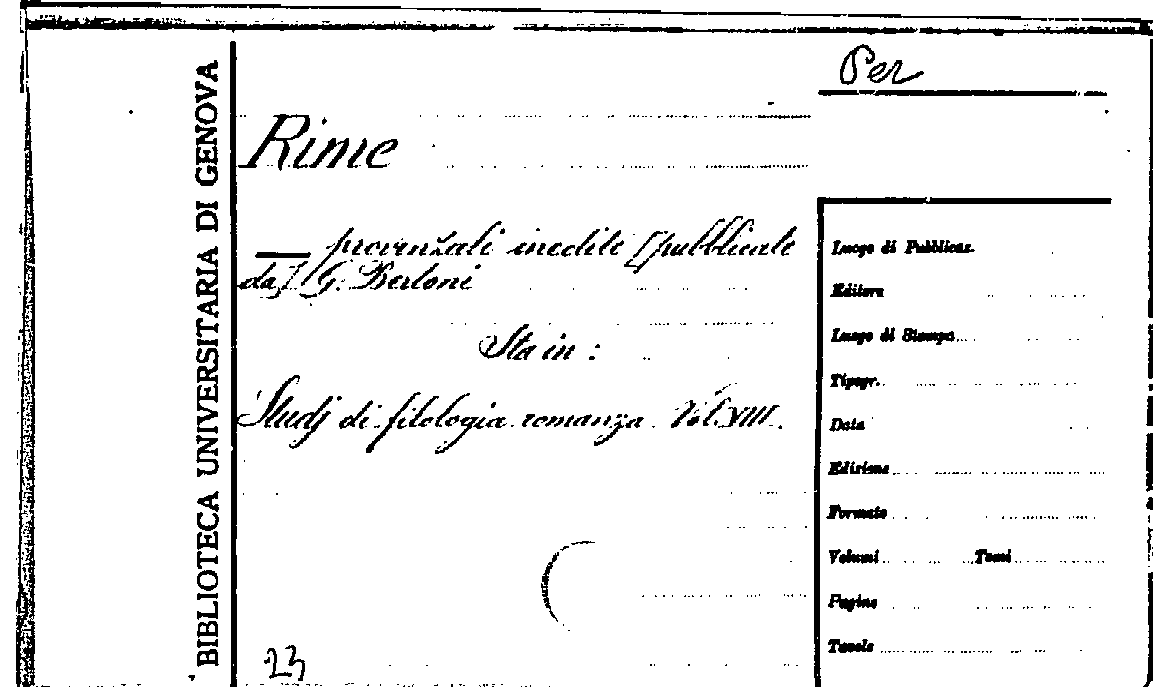 BIBLIOTECA UNIVERSITARIA DI GENOVA
Per
Rime
— provenzali inedite [pubblicate
da] G. Bertoni
Sta in :
Studj di filologia romanza. Vol. VIII.
23
Luogo di Pubblicaz.
Editore
Luogo di Stampa
Tipogr.
Data
Edizione
Formato
Volumi Tomi
Pagine
Tavole